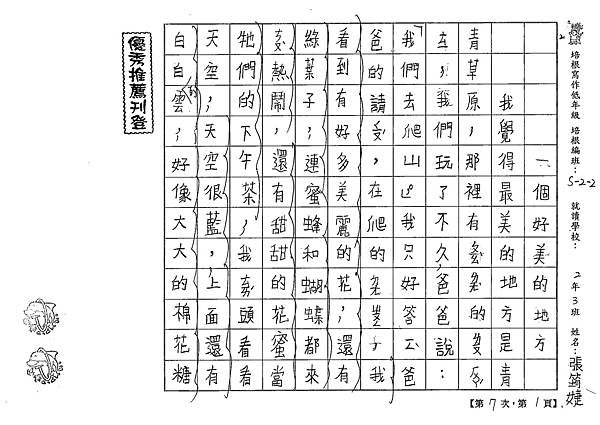 培根寫作低年級 培根編班：S-2-2 就讀學校： 2年3班 姓名：張筠婕
一個好美的地方
我覺得最美的地方是青
青草原，那裡有
在，我們玩了不久，爸爸說：
我們去爬山吧我只好答爸
爸的請，在爬的我
看到有好多美麗的花，還有
綠葉子，連蜜蜂和蝴蝶都來
熱鬧，還有甜甜的花蜜當
牠們的下午茶，我頭看看
天空，天空很藍，上面還有
白白雲，好像大大的棉花糖
【第7次，第1頁】
優秀推薦刊登